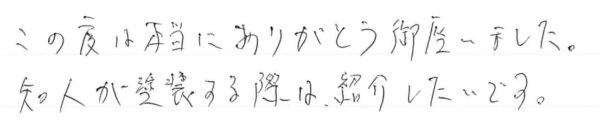 この度は本当にありがとう御座いました。
知人が塗装する際は、紹介したいです。